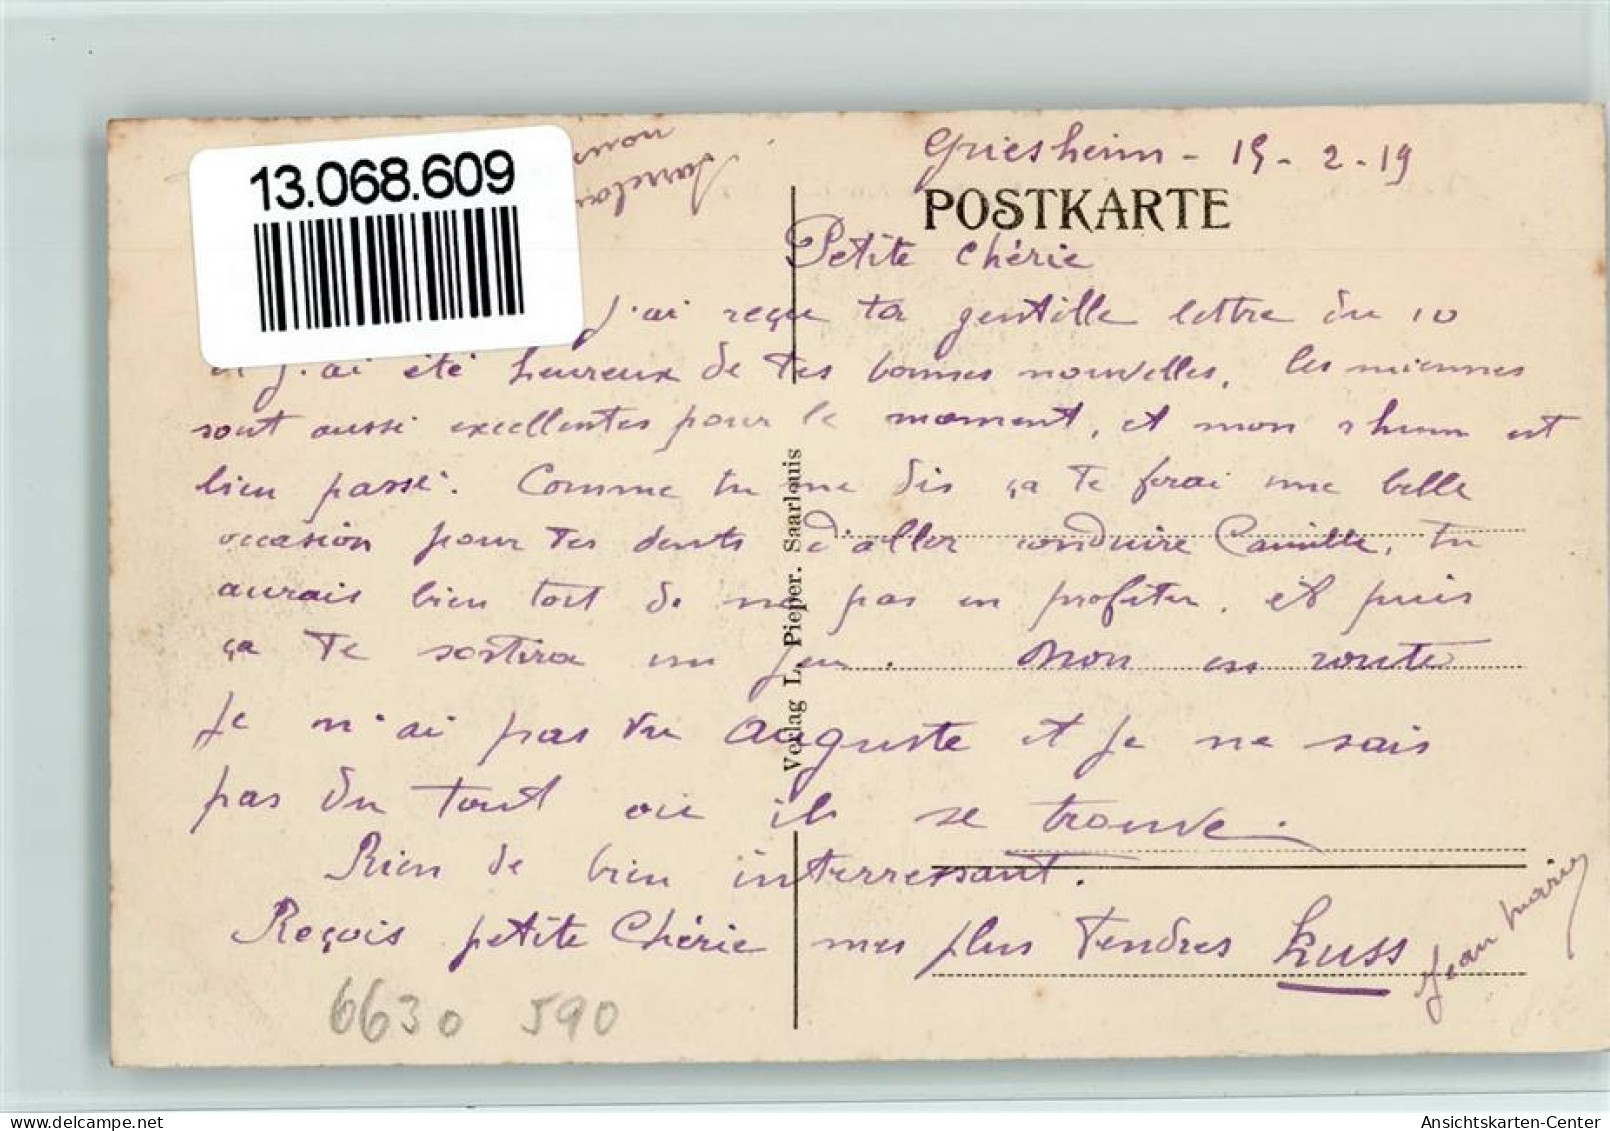 13.068.609
Griesheim - 15-2-19
POSTKARTE
Petite Chérie
j'ai reçu ta gentille lettre du 10
et j'ai été heureux de tes bonnes nouvelles, les miennes
sont aussi excellentes pour le moment, et mon rhum est
bien passé. Comme tu me dis ça te ferai une belle
occasion pour tes dents d'aller conduire Camille, tu
aurais bien tort de ne pas en profiter, et puis
ça te sortira un peu. Mon en route
je n'ai pas vu Auguste et je ne sais
pas du tout où il se trouve.
Rien de bien interressant.
Reçois petite Chérie mes plus tendres Kuss
Jean Marie
Verlag L. Pieper. Saarlouis
6630 590
Ansichtskarten-Center